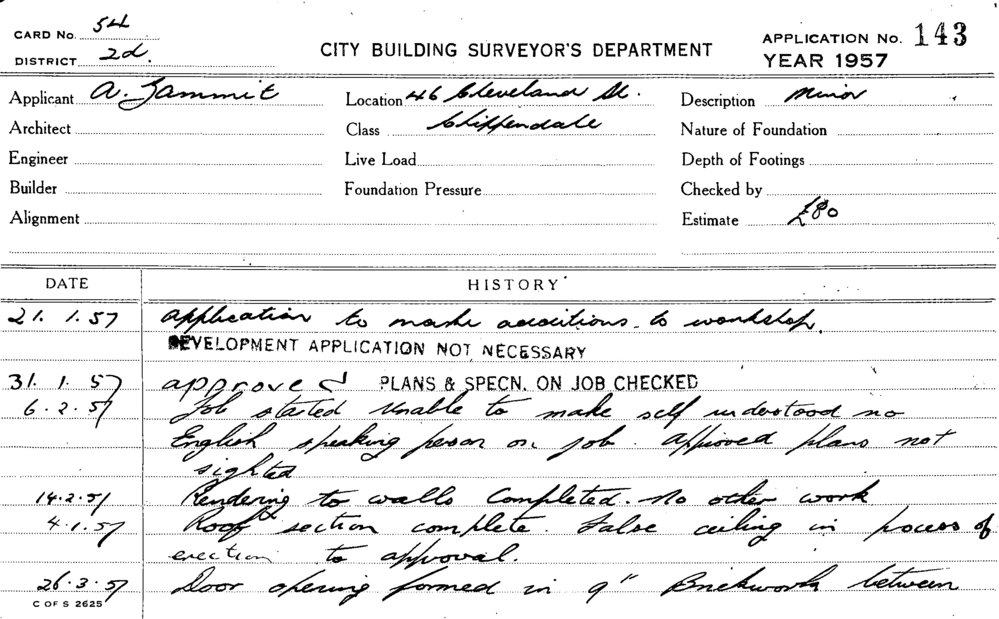 CARD No. 54
DISTRICT 2d.
CITY BUILDING SURVEYOR'S DEPARTMENT
APPLICATION No. 143
YEAR 1957
Applicant A. Zammit
Location 46 Cleveland St.
Description Minor
Architect
Class Chippendale
Nature of Foundation
Engineer
Live Load
Depth of Footings
Builder
Foundation Pressure
Checked by
Alignment
Estimate £80
DATE HISTORY
21. 1. 57 Application to make additions to workshop.
DEVELOPMENT APPLICATION NOT NECESSARY
31. 1. 57 approved PLANS & SPECN. ON JOB CHECKED
6. 2. 57 Job started Unable to make self understood no
English speaking person on job. Approved plans not
sighted
14.2.57 Rendering to walls Completed. No other work
4.1.57 Roof section complete. False ceiling in process of
erection to approval.
26.3.57 Door opening formed in 9" Brickwork between
C OF S 2625